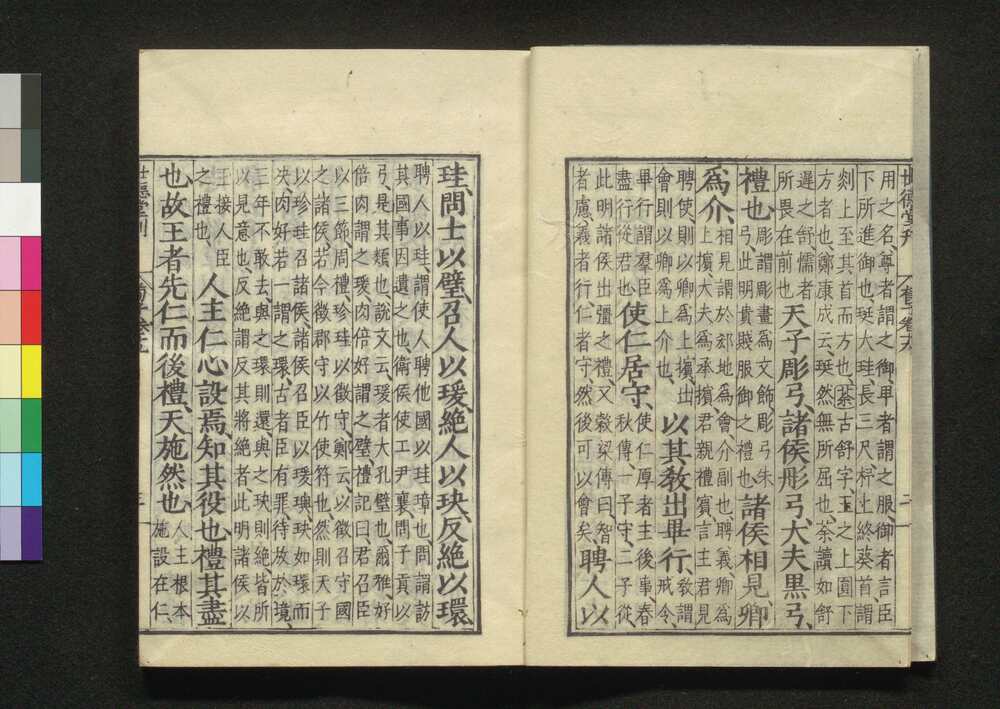 世德堂刊
用之名、尊者謂之御、卑者謂之服、御者言臣
下所進御也、珽大珪、長三尺、杼上終葵首、謂
刻上至其首而方也、荼古舒字、玉之上圓下
方者也、鄭康成云、珽然無所屈也、荼讀如舒
遲之舒、懦者
所畏在前也
天子彫弓、諸侯彤弓、大夫黑弓、
禮也、
彫謂彫畫爲文飾、彫弓朱
弓、此明貴賤服御之禮也
諸侯相見、卿
爲介、
相見謂於郤地爲會、介副也、聘義、卿爲
上擯、大夫爲承擯、君親禮賓、言主君見
聘使、則以卿爲上擯、出
會則以卿爲上介也、
以其教出畢行、
教謂
戒令、
畢行謂羣臣
盡行從君也、
使仁居守、
使仁厚者主後事、春
秋傳、一子守、二子從、
此明諸侯出彊之禮、又穀梁傳曰、智
者慮、義者行、仁者守、然後可以會矣、
聘人以
珪、問士以璧、召人以瑗、絶人以玦、反絶以環、
聘人以珪、謂使人聘他國以珪璋也、問謂訪
其國事、因遺之也、衛侯使工尹襄問子貢以
弓、是其類也、說文云、瑗者大孔璧也、爾雅、好
倍肉謂之瑗、肉倍好謂之璧、禮記曰、君召臣
以三節、周禮、珍珪以徵守、鄭云、以徵召守國
之諸侯、若今徵郡守以竹使符也、然則天子
以珍珪召諸侯、諸侯召臣以瑗歟、玦如環而
決、肉好若一謂之環、古者臣有罪、待放於境、
三年不敢去、與之環則還、與之玦則絶、皆所
以見意也、反絶謂反其將絶者、此明諸侯以
王接人臣
之禮也、
人主仁心設焉、知其役也、禮其盡
也、故王者先仁而後禮、天施然也、
人主根本
施設在仁、
世德堂刊